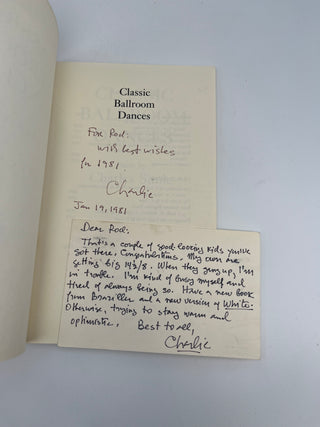 Classic
Ballroom
Dances
For Rod:
with best wishes
for 1981
Charlie
Jan 19, 1981
Dear Rod:
That's a couple of good-looking kids you've
got there. Congratulations. My own are
getting big 14½/8. When they grow up, I'm
in trouble. I'm kind of busy myself and
tired of always being so. Have a new book
from Braziller and a new version of White.
Otherwise, trying to stay warm and
optimistic. Best to all,
Charlie